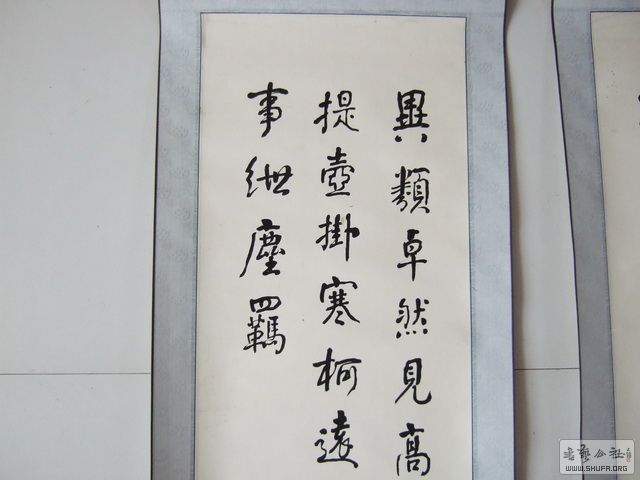 異類卓然見高
提壺掛寒柯遠
事紲塵羈
公社
WWW.SHUFA.ORG